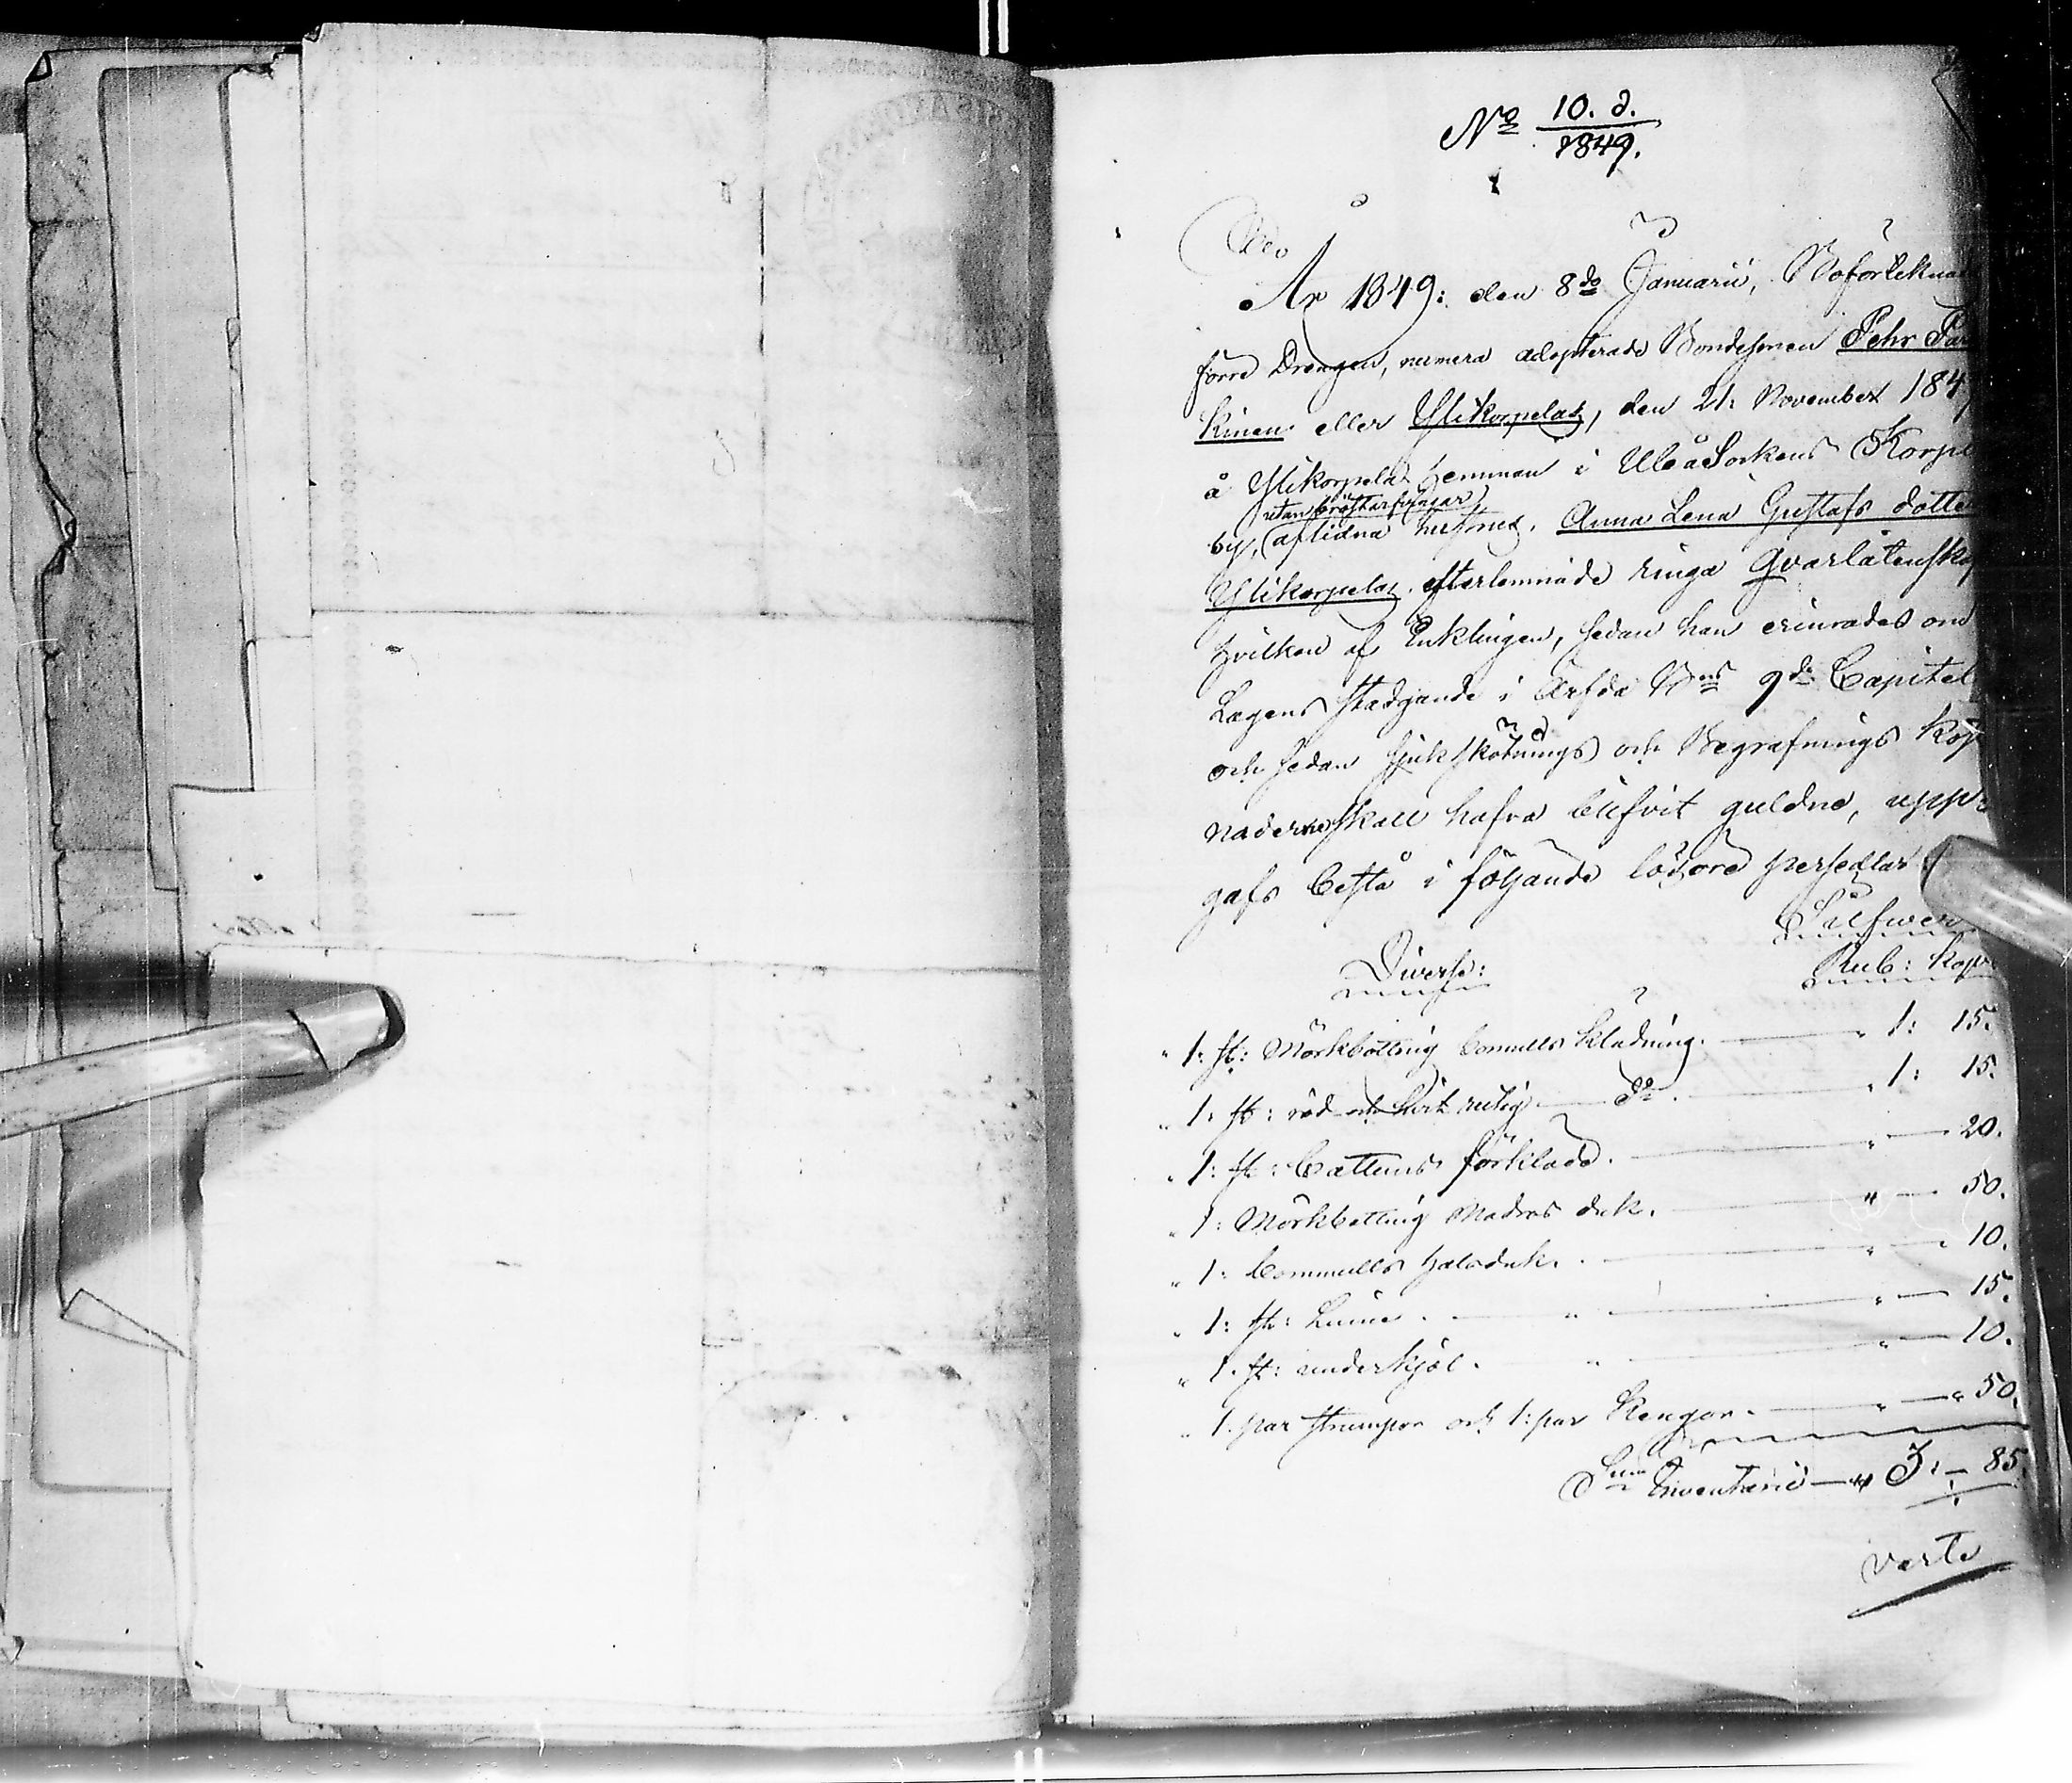 No 10. d.
1849.
År 1849: den 8de Januarii, Boförtekna
förre Drengen, numera adopterade Bondesonen Pehr Par
kinen eller Ylikorpela, den 21: November 184
å Ylikorpela Hemman i Uleå Sockens Korpi
utan bröstarfvingar
by, aflidna hustrus. Anna Lena Gustafs dotter
Ylikorpelas efterlemnade ringa Qvarlåtenskap
hvilken af Enklingen, sedan han erinrades om
Lagens stadgande i Ärfda Bns 9de Capitel
och sedan Sjukskötnings och Begrafnings Kost
naderne skall hafva blifvit guldne, upp
gafs bestå i följande lösöre persedlar.
Silfwer
Diverse:
Rub: Kop:
" 1: st: Mörkbottnig bomulls Kladning. " 1: 15.
" 1: st: röd och hvit rutig do. " 1: 15.
" 1: st: Cattuns förkläde. " 20.
" 1: Mörkbottnig Madras duk. " 50.
" 1: Bommulls halsduk. " 10.
" 1: st: Linne. " " 15.
" 1. st: underkjol. " " 10.
" 1. par strumpor och 1: par Kengor. " " 50.
Sma Inventarii " 3: 85.
verte